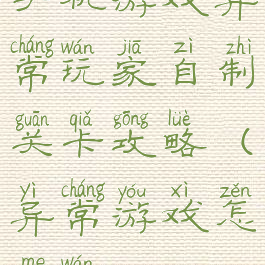 手机游戏异
cháng wán jiā zì zhì
常玩家自制
guān qiǎ gōng lüè
关卡攻略（
yì cháng yóu xì zěn
异常游戏怎
me wán